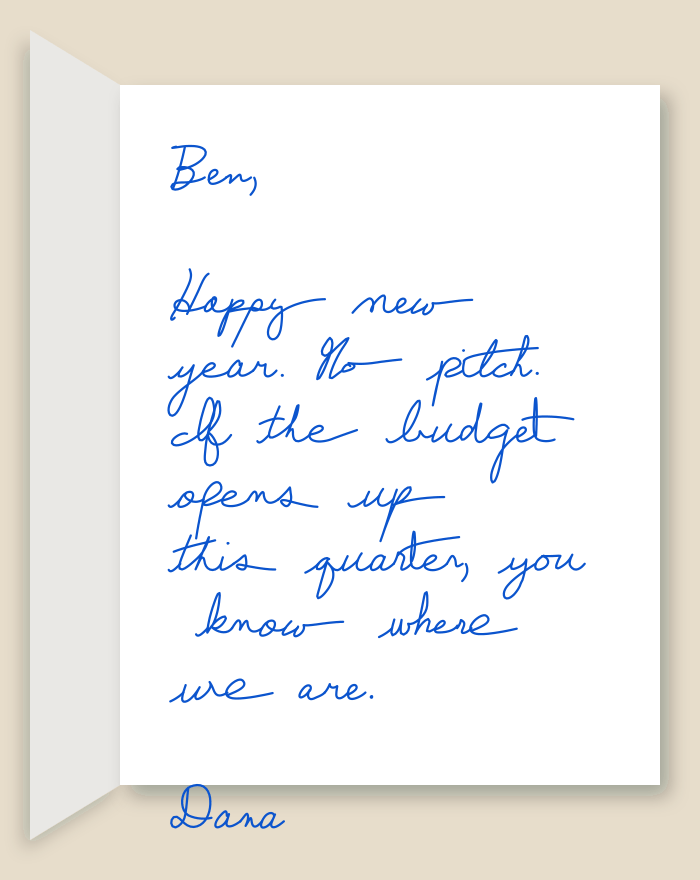 Ben,
Happy new
year. No pitch.
If the budget
opens up
this quarter, you
know where
we are.
Dana